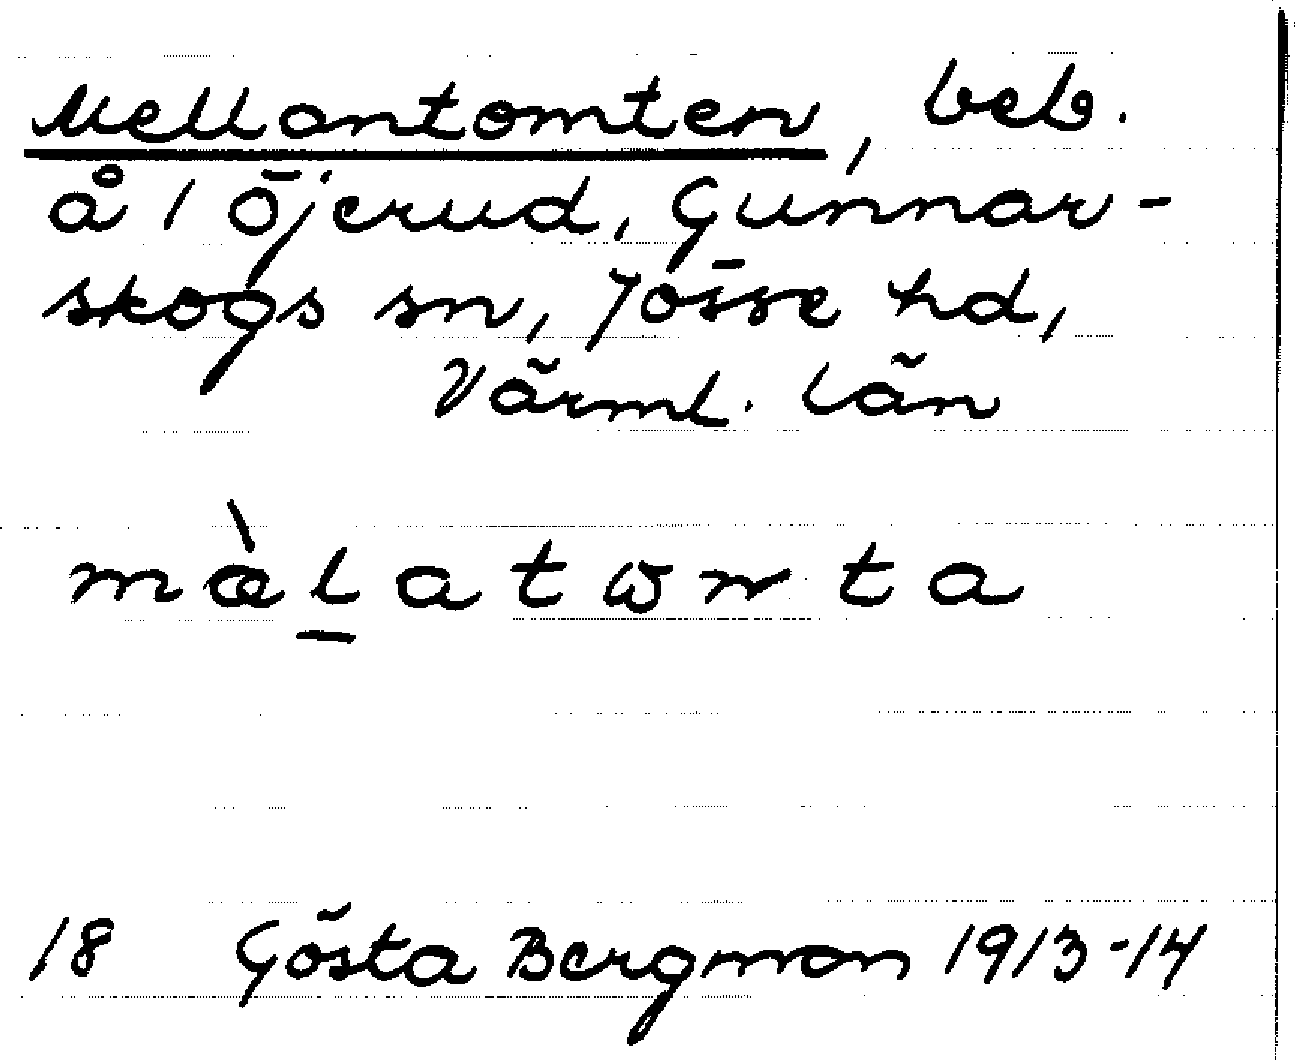 Mellantomten, beb.
å 1 Öjerud, Gunnar-
skogs sn, Jösse hd,
Värml. län
mæ̀l̠atωnta
18 Gösta Bergman 1913-14